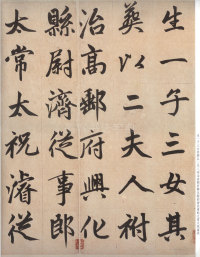 生一子三女其
葬以二夫人祔
治高郵府興化
縣尉濟從事郎
太常太祝濬從